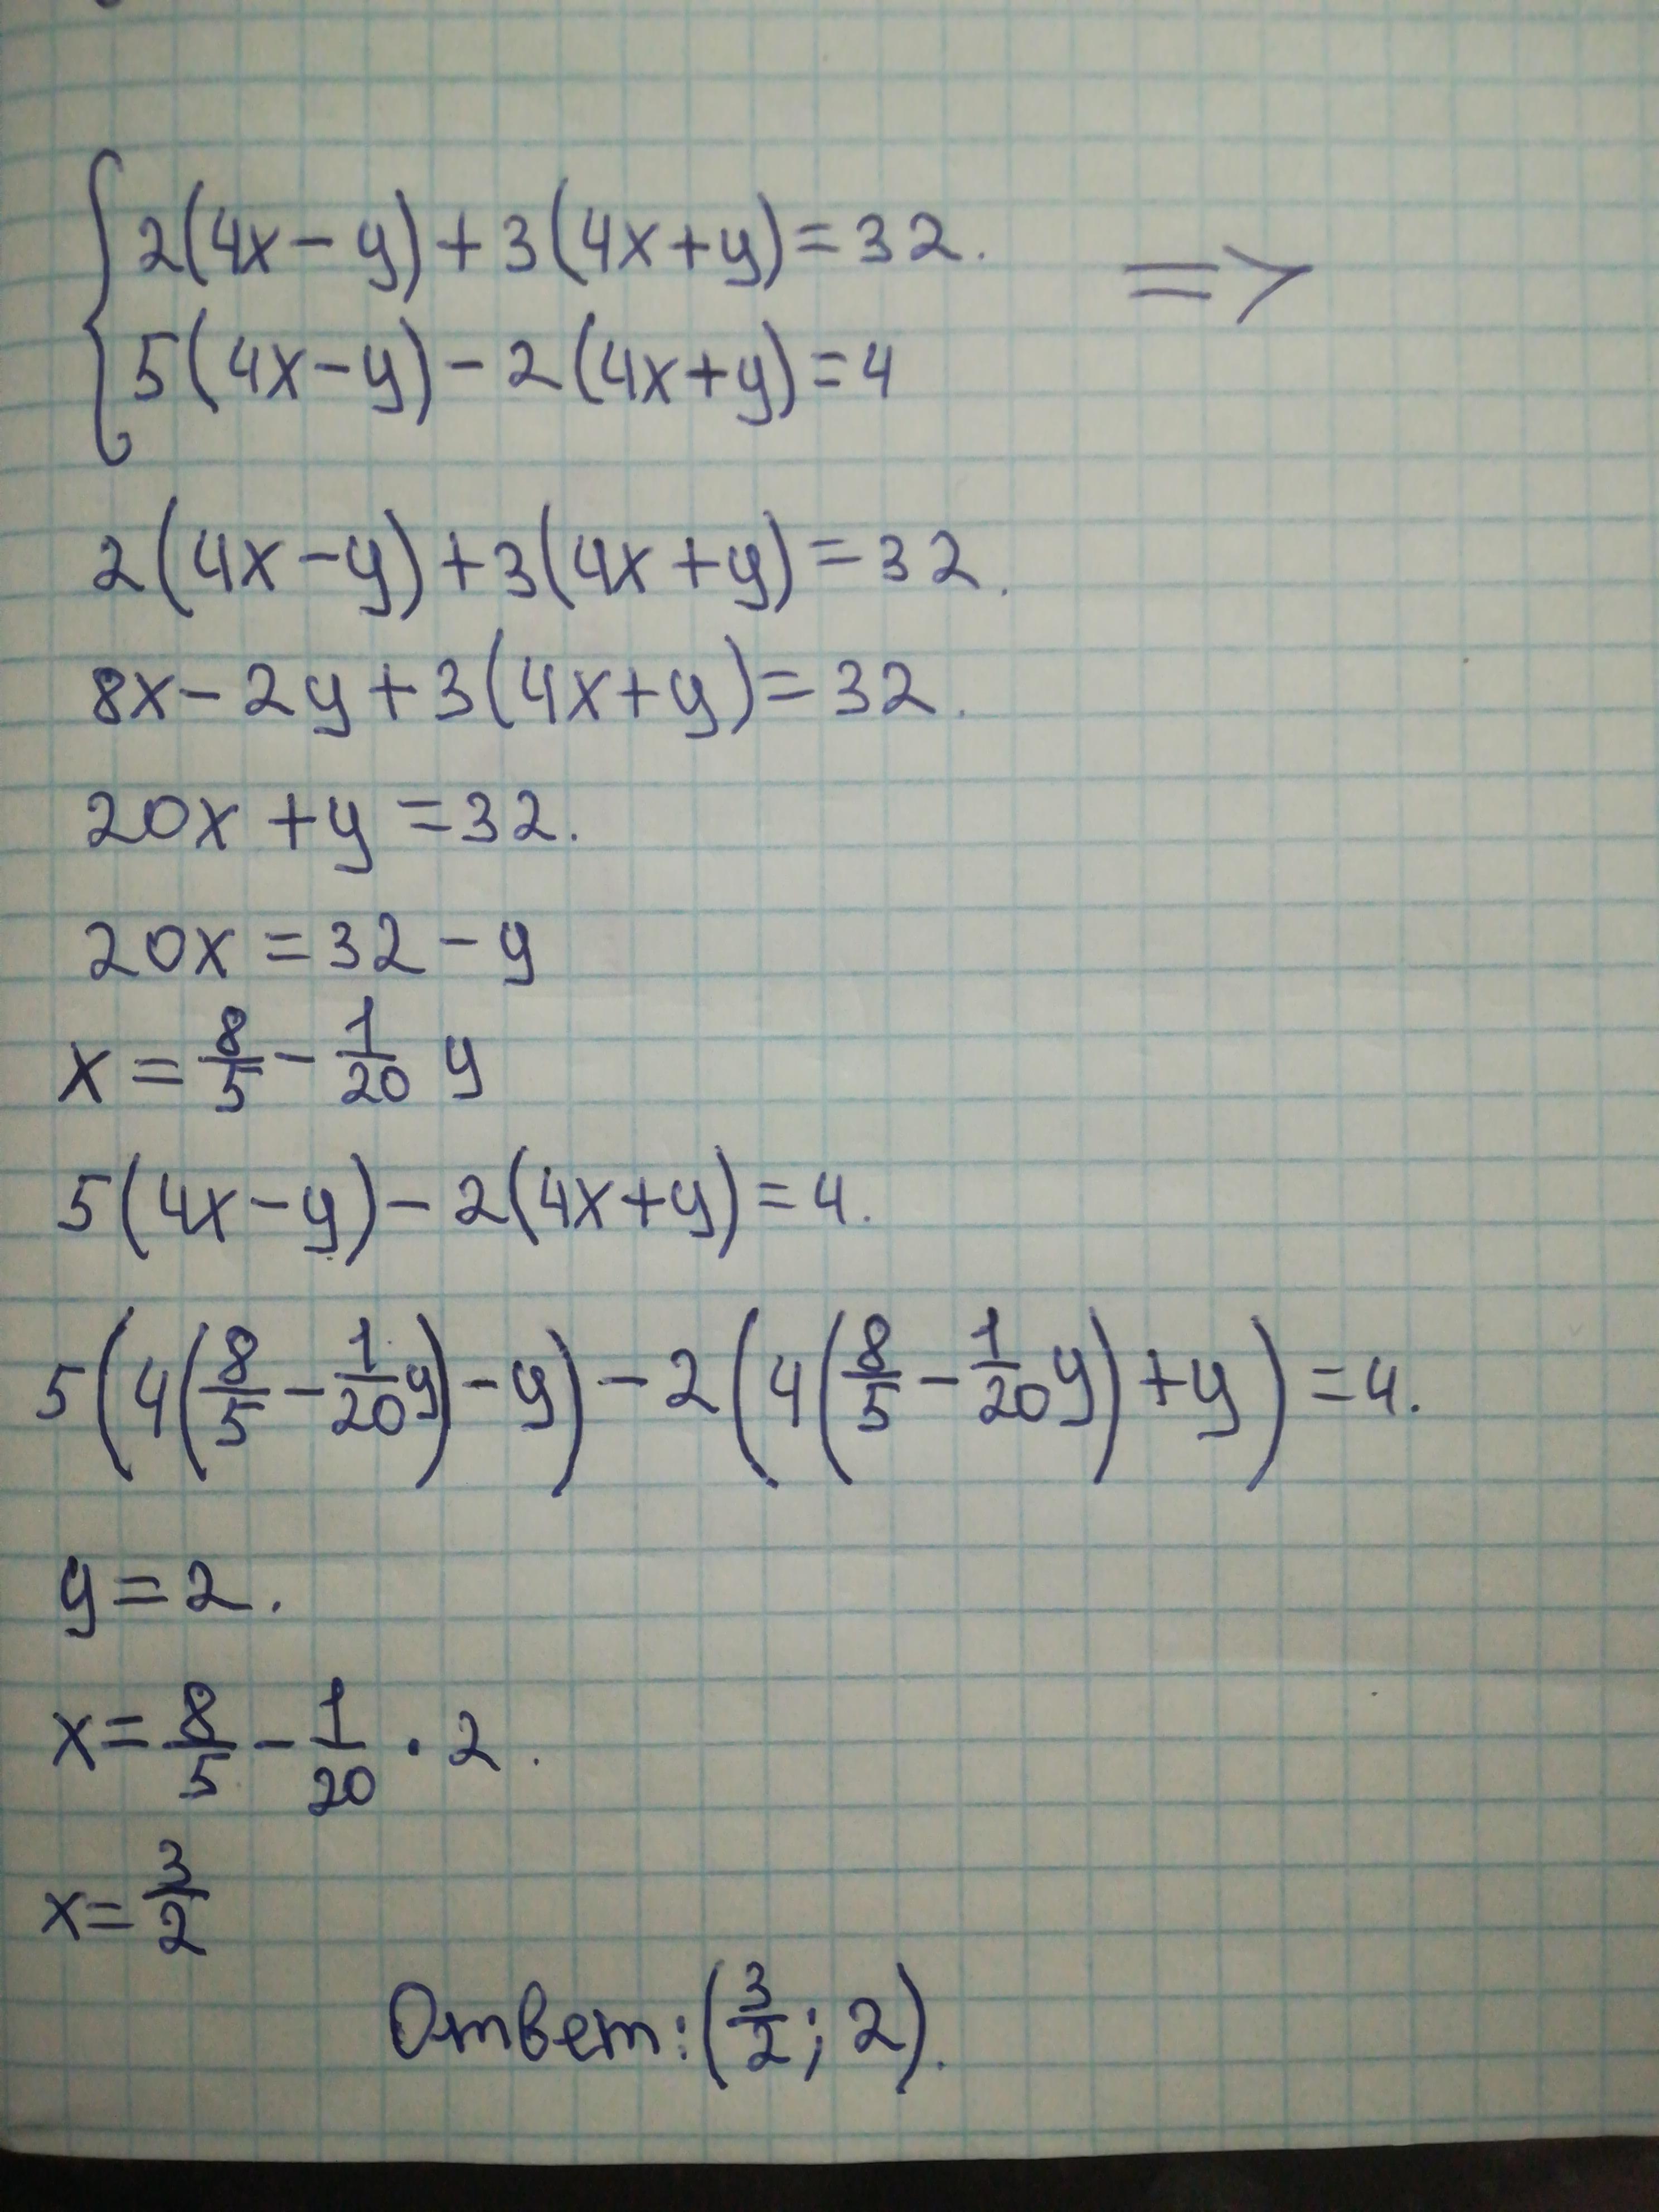 { 2(4x-y)+3(4x+y)=32. =>
5(4x-y)-2(4x+y)=4
2(4x-y)+3(4x+y)=32.
8x-2y+3(4x+y)=32.
20x+y=32.
20x=32-y
x=8/5-1/20 y
5(4x-y)-2(4x+y)=4.
5(4(8/5-1/20y)-y)-2(4(8/5-1/20y)+y)=4.
y=2.
x=8/5-1/20·2.
x=3/2
Ответ:(3/2;2).